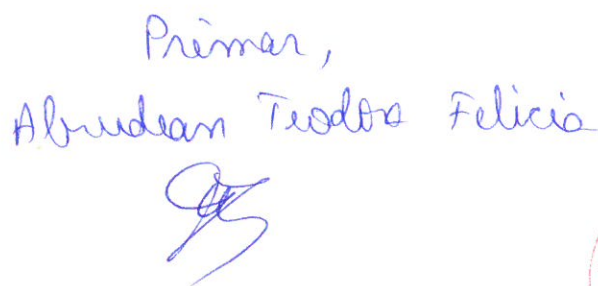 Primar,
Abrudean Teodora Felicia